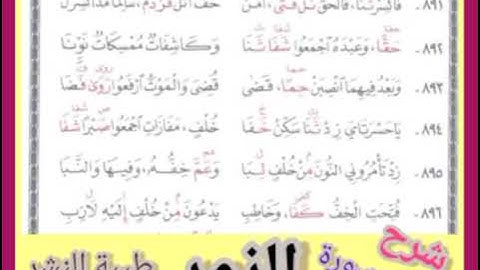 ٨٩١. فَاكْسِرْ ثَنَا، فَالْحَقُّ نَلْ فَتًى، أَمَنْ خَفَّ اتْلُ فُزْ دُمْ، سَالِمًا مَدُّ اكْسِرَنْ
٨٩٢. حَقًّا، وَعَبْدَهُ اجْمَعُوا شَفَا ثَنَا وَكَاشِفَاتٌ مُمْسِكَاتٌ نَوِّنَا
٨٩٣. وَبَعْدُ فِيهِمَا انْصِبَنْ حِمًا، قَضَى قُضِيَ وَالْمَوْتُ ارْفَعُوا رَوَى فَضَا
٨٩٤. يَا حَسْرَتَايَ زِدْ ثَنَا سَكِّنْ خَفَا خُلْفٍ، مَفَازَاتِ اجْمَعُوا صَبْرًا شَفَا
٨٩٥. زِدْ تَأْمُرُونِي النُّونَ مِنْ خُلْفٍ لِبَا وَعَمَّ خِفُّهُ، وَفِيهَا وَالنَّبَا
٨٩٦. فُتِحَتِ الْخِفُّ كَفَا، وَخَاطِبِ يَدْعُونَ مِنْ خُلْفٍ إِلَيْهِ لَازِبِ
شرح سورة الزمر طيبة النشر